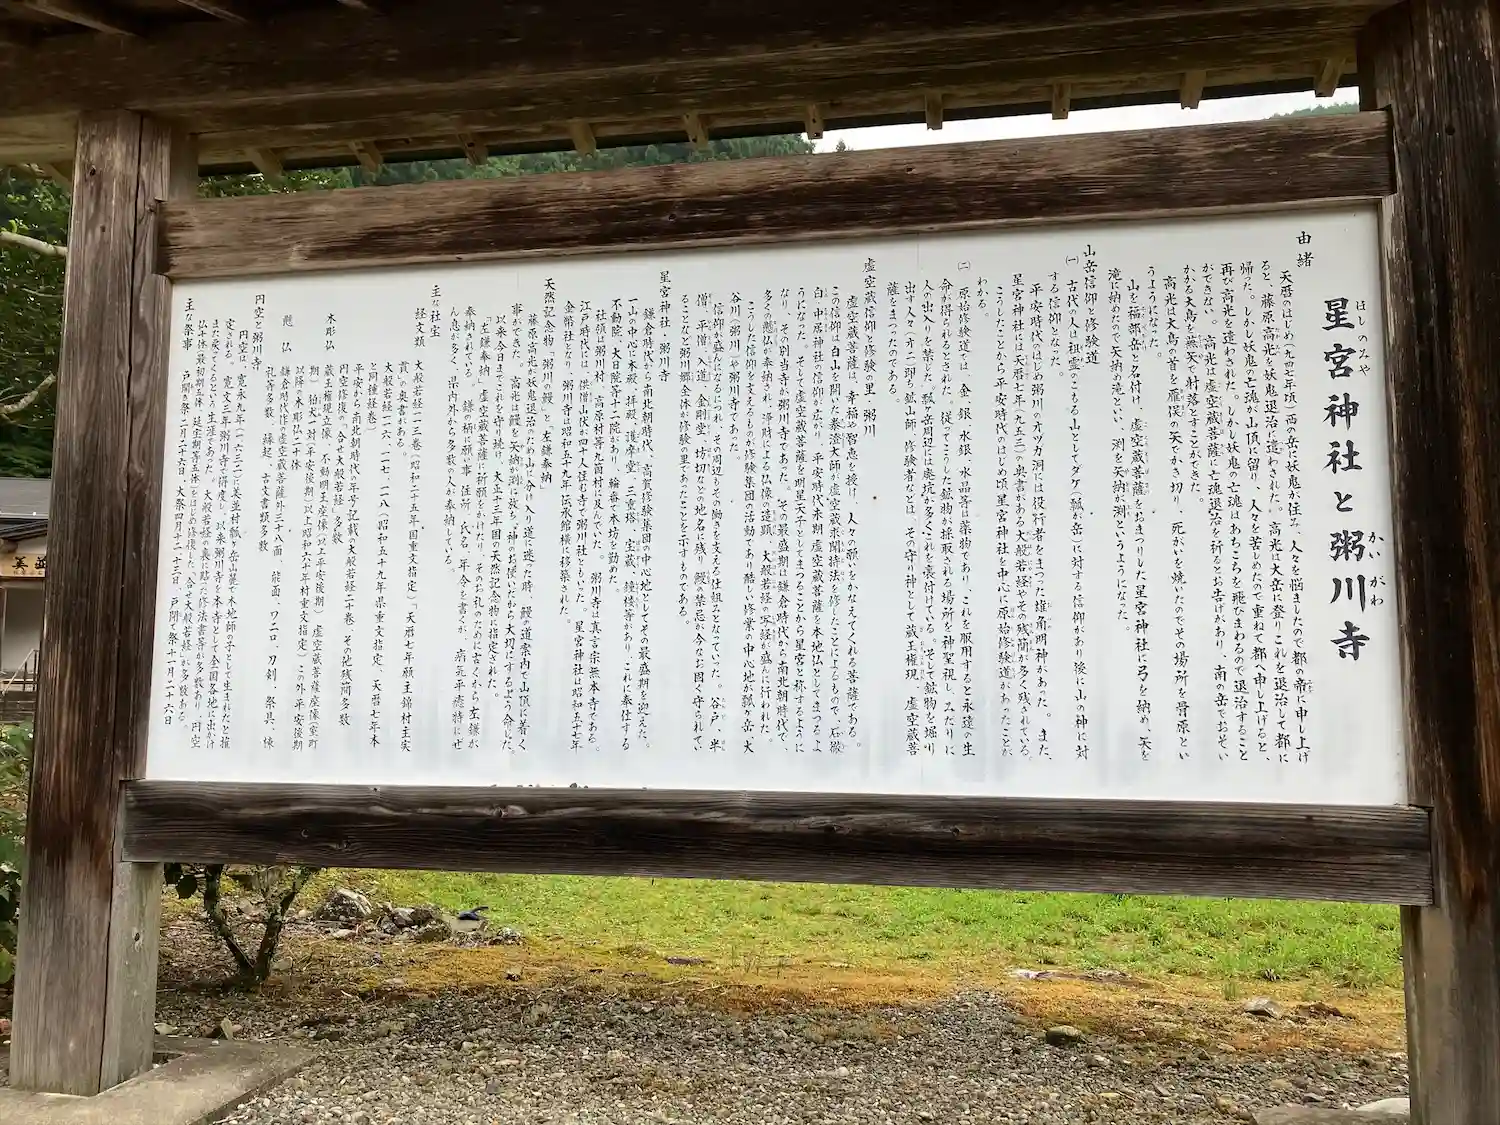 星宮神社と粥川寺
ほしのみや
かいがわ
由緒
天暦のはじめ(九四七年頃)西の岳に妖鬼が住み、人々を悩ましたので都の帝に申し上げ
ると、藤原高光を妖鬼退治に遣わされた。高光は大岳に登りこれを退治して都に
帰った。しかし妖鬼の亡魂が山頂に留り、人々を苦しめたので重ねて都へ申し上げると、
再び高光を遣わされた。しかし妖鬼の亡魂はあちこちを飛びまわるので退治すること
ができない。高光は虚空蔵菩薩に亡魂退治を祈るとお告げがあり、南の岳でおそい
かかる大鳥を蕪矢で射落とすことができた。
高光は大鳥の首を雁俣の矢でかき切り、死がいを焼いたのでその場所を骨原とい
うようになった。
山を福部岳と名付け、虚空蔵菩薩をおまつりした星宮神社に弓を納め、矢を
滝に納めたので矢納ヶ滝といい、渕を矢納ヶ渕というようになった。
山岳信仰と修験道
(一) 古代の人は祖霊のこもる山としてダケ(瓢ヶ岳)に対する信仰があり後に山の神に対
する信仰となった。
平安時代のはじめ粥川のオツガ洞には役行者をまつった雄角明神があった。また、
星宮神社には天暦七年(九五三)の奥書がある大般若経やその残簡が多く残されている。
こうしたことから平安時代のはじめ頃星宮神社を中心に原始修験道があったことが
わかる。
(二) 原始修験道では、金、銀、水銀、水晶等は薬物であり、これを服用すると永遠の生
命が得られるとされた。従ってこうした鉱物が採取される場所を神聖視し、みだりに
人の出入りを禁じた。瓢ヶ岳周辺には廃坑が多くこれを裏付けている。そして鉱物を堀り
出す人々オニ即ち鉱山師、修験者などは、その守り神として蔵王権現、虚空蔵菩
薩をまつったのである。
虚空蔵信仰と修験の里・粥川
虚空蔵菩薩は、幸福や智恵を授け、人々の願いをかなえてくれる菩薩である。
この信仰は白山を開いた泰澄大師が虚空蔵求聞持法を修したことによるもので、石徹
白・中居神社の信仰が広がり、平安時代末期、虚空蔵菩薩を本地仏としてまつるよ
うになった。そして虚空蔵菩薩を明星天子としてまつることから星宮と称するように
なり、その別当寺が粥川寺であった。その最盛期は鎌倉時代から南北朝時代で
多くの懸仏が奉納され、浄財による仏像の造顕、大般若経の写経が盛んに行われた。
こうした信仰を支えるものが修験集団の活動であり酷しい修業の中心地が瓢ヶ岳・大
谷川(粥川)や粥川寺であった。
信仰が盛んになるにつれ、その周辺もその働きを支える仕組みとなっていた。谷戸、半
僧、平僧、入道、金剛堂、坊切などの地名に残り、鰻の禁忌は今なお固く守られてい
ることなど粥川郷全体が修験の里であったことを示すものである。
星宮神社、粥川寺
鎌倉時代から南北朝時代、高賀修験集団の中心地としてその最盛期を迎えた。
一山の中心に本殿、拝殿、護摩堂、三重塔、宝蔵、鐘楼等があり、これに奉仕する
不動院、大日院等十二院があり、輪番で本坊を勤めた。
社領は粥川村、高原村等九箇村に及んでいた。粥川寺は真言宗無本寺である。
江戸時代には、供僧山伏が四十人住む寺で粥川社ともいった。星宮神社は昭和五十七年
金幣社となり、粥川寺は昭和五十九年伝承館横に移築された。
天然記念物「粥川の鰻」と「左鎌奉納」
藤原高光が妖鬼退治のため山に分け入り道に迷った時、鰻の道案内で山頂に着く
事ができた。高光は鰻を矢納ヶ渕に放ち、「神のお使いだから大切にするよう命じた。
以来今日までこれを守り続け、大正十三年国の天然記念物に指定された。
「左鎌奉納」虚空蔵菩薩に祈願をかけたり、そのお礼のために古くから左鎌が
奉納されている。鎌の柄に願い事、住所、氏名、年令を書くが、病気平癒特にぜ
ん息が多く、県内外から多数の人が奉納している。
主な社宝
経文類 大般若経一二三巻(昭和二五年国重文指定)「天暦七年願主錦村主実
貫」の奥書がある。
大般若経一一六、一一七、一一八(昭和五十九年県重文指定、天暦七年本
と同種経巻)
平安から南北朝時代の年号記載の大般若経二十巻、その他残簡多数
円空修復の、合せ大般若経 多数
木彫仏 蔵王権現立像、不動明王座像(以上平安後期) 虚空蔵菩薩座像(室町
期) 狛犬一対(平安後期)(以上昭和六十年村重文指定)この外、平安後期
以降の木彫仏二十体
懸仏 鎌倉時代作の虚空蔵菩薩外三十八面、能面、ワニ口、刀剣、祭具、棟
札等多数、縁起、古文書類多数
円空と粥川寺
円空は、寛永九年(一六三二)に美並村瓢ヶ岳山麓で木地師の子として生まれたと推
定される。寛文三年粥川寺で得度し、以来粥川寺を本寺として全国各地に出かけ
また戻ってくるという生涯であった。大般若経の裏に貼った修法書等が多数あり、円空
仏十体(最初期三体、延宝期等五体)をはじめ修復した、合せ大般若経が多数ある。
主な祭事 戸開き祭 二月二十六日、大祭四月十二、十三日、戸閉て祭十一月二十六日